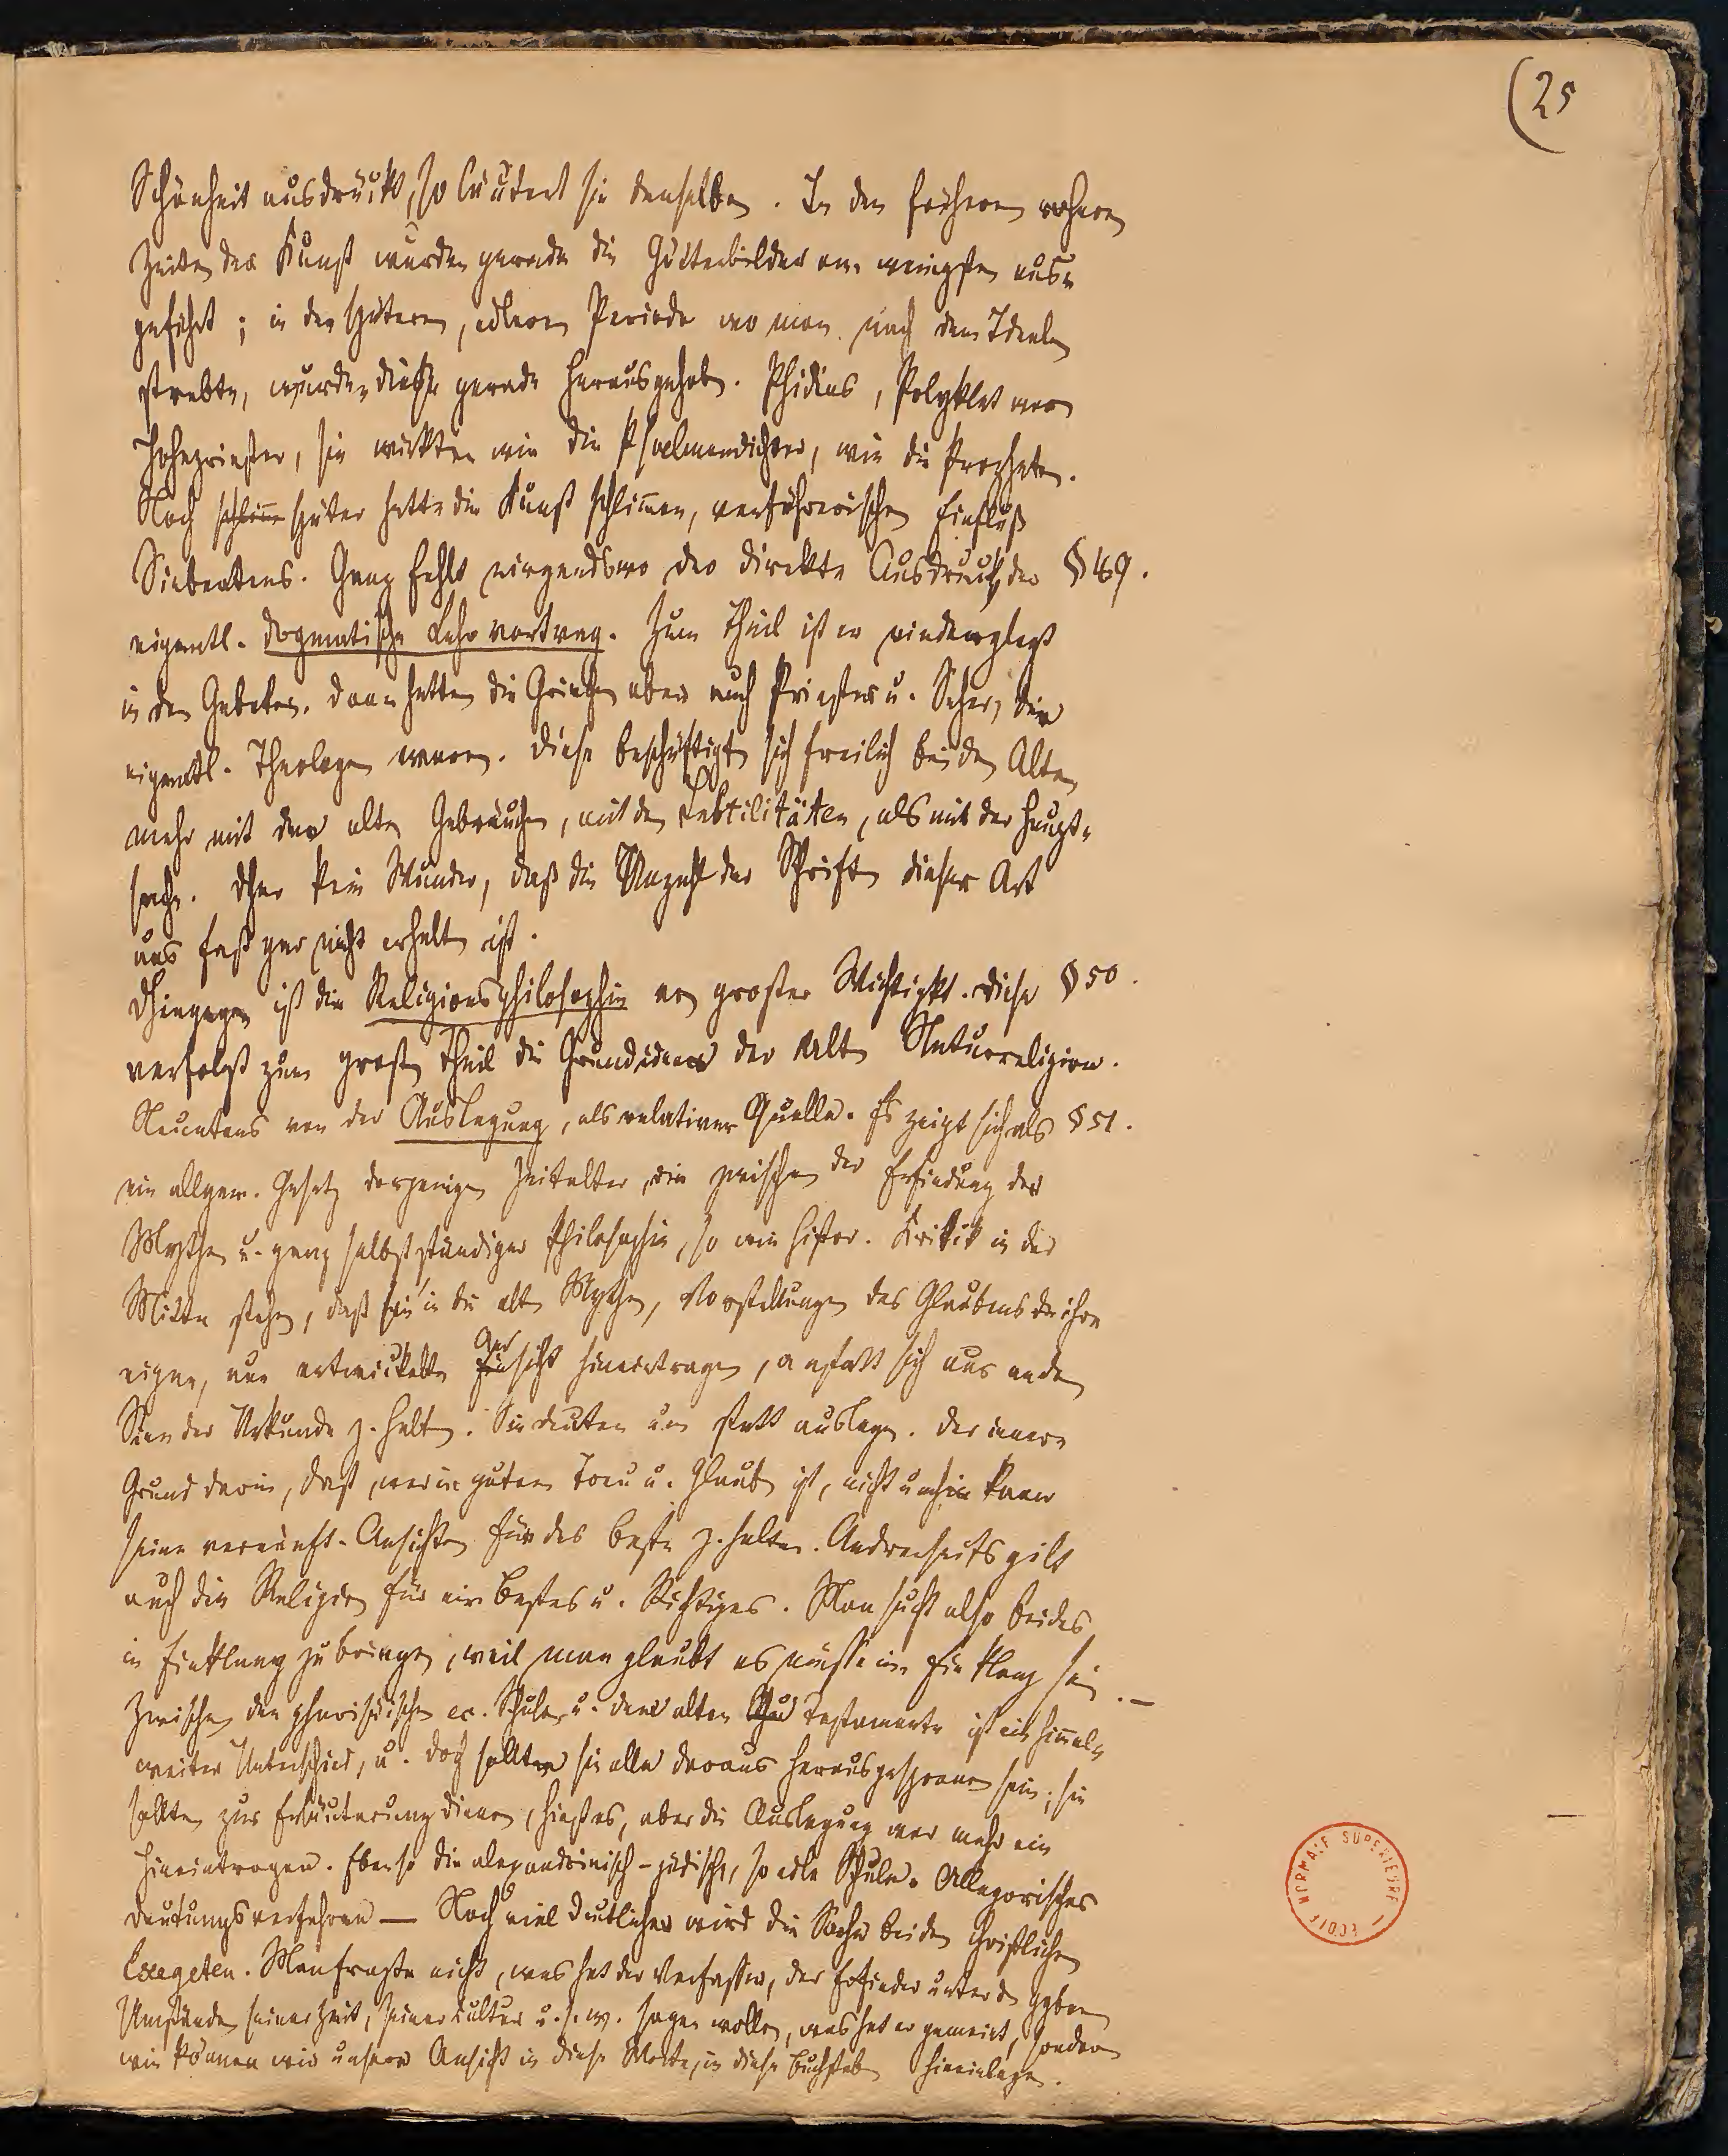 (25
Schönheit ausdrückt, so läutert sie denselben. In den frühern rohern
Zeiten der Kunst wurden gerade die Götterbilder am wenigsten aus-
geführt; in der spätern, edlern Periode wo man nach dem Ideale
strebte, wurden diese gerade herausgehob. Phidias, Polyklet war
Hohepriester, sie wirkten wie die Psalmendichter, wie die Propheten.
Noch später hatte die Kunst schlimmen, verführerischen Einfluß
Siebentens. Ganz fehlt nirgendswo der direkte Ausdruck, der §49.
eigentl. dogmatische Lehrvortrag. Zum Theil ist er niedergelegt
in den Gebeten. Dann hatten die Griechen aber auch Priester u. Seher, die
eigentl. Theologen waren. Diese beschäftigt sich freilich bei den Alten
mehr mit den alten Gebräuchen, mit den Subtilitäten, als mit der Haupt-
sache. Dher kein Wunder, daß die Unzahl der Schriften dieser Art
uns fast gar nicht erhalten ist.
Dhingegen ist die Religionsphilosophie von großer Wichtigkt. Diese §50.
verfolgt zum großen Theil die Grundideen der alten Naturreligion.
Neuntens von der Auslegung, als relativer Quelle. Es zeigt sich als §51.
ein allgem. Gesetz derjenigen Zeitalter, die zwischen der Erfindung der
Mythen u. ganz selbstständiger Philosophie, so wie histor. Kritik in der
Mitte stehen, daß sie in die alten Mythen, Vorstellungen des Glaubens die ihre
eigne, nun entwickelte Ansicht hineintragen, anstatt sich aus an den
Sinn der Urkunde z. halten. Sie deuten um statt auslegen. Der innere
Grund darin, daß, wer in gutem Treu u. Glaub ist, nicht umhin kann
seine vernünft. Ansichten für das beste z. halten. Andrerseits gilt
auch die Religion für ein bestes u. Richtiges. Man sucht also beides
in Einklang zu bringen, weil man glaubt es müsse im Einklang sein. —
Zwischen den pharisäischen ec. Schulen u. dem alten Testamente ist ein himmel-
weiter Unterschied, u. doch sollten sie alle daraus herausgesponnen sein; sie
sollten zur Erläuterung dienen, hieß es, aber die Auslegung war mehr ein
Hineintragen. Ebenso die alexandrinisch-jüdische, so edle Schule. Allegorisches
Deutungsverfahren — Noch viel deutlicher wird die Sache bei den christlichen
Exegeten. Man fragte nicht, was hat der Verfasser, der Erfinder unter d. ggbnen
Umständen seiner Zeit, seiner Cultur u. s. w. sagen wollen, was hat er gemeint, sondern
wie können wir unsere Ansicht in diese Worte, in diese Buchstaben hineinlegen.
ECOLE NORMALE SUPERIEURE